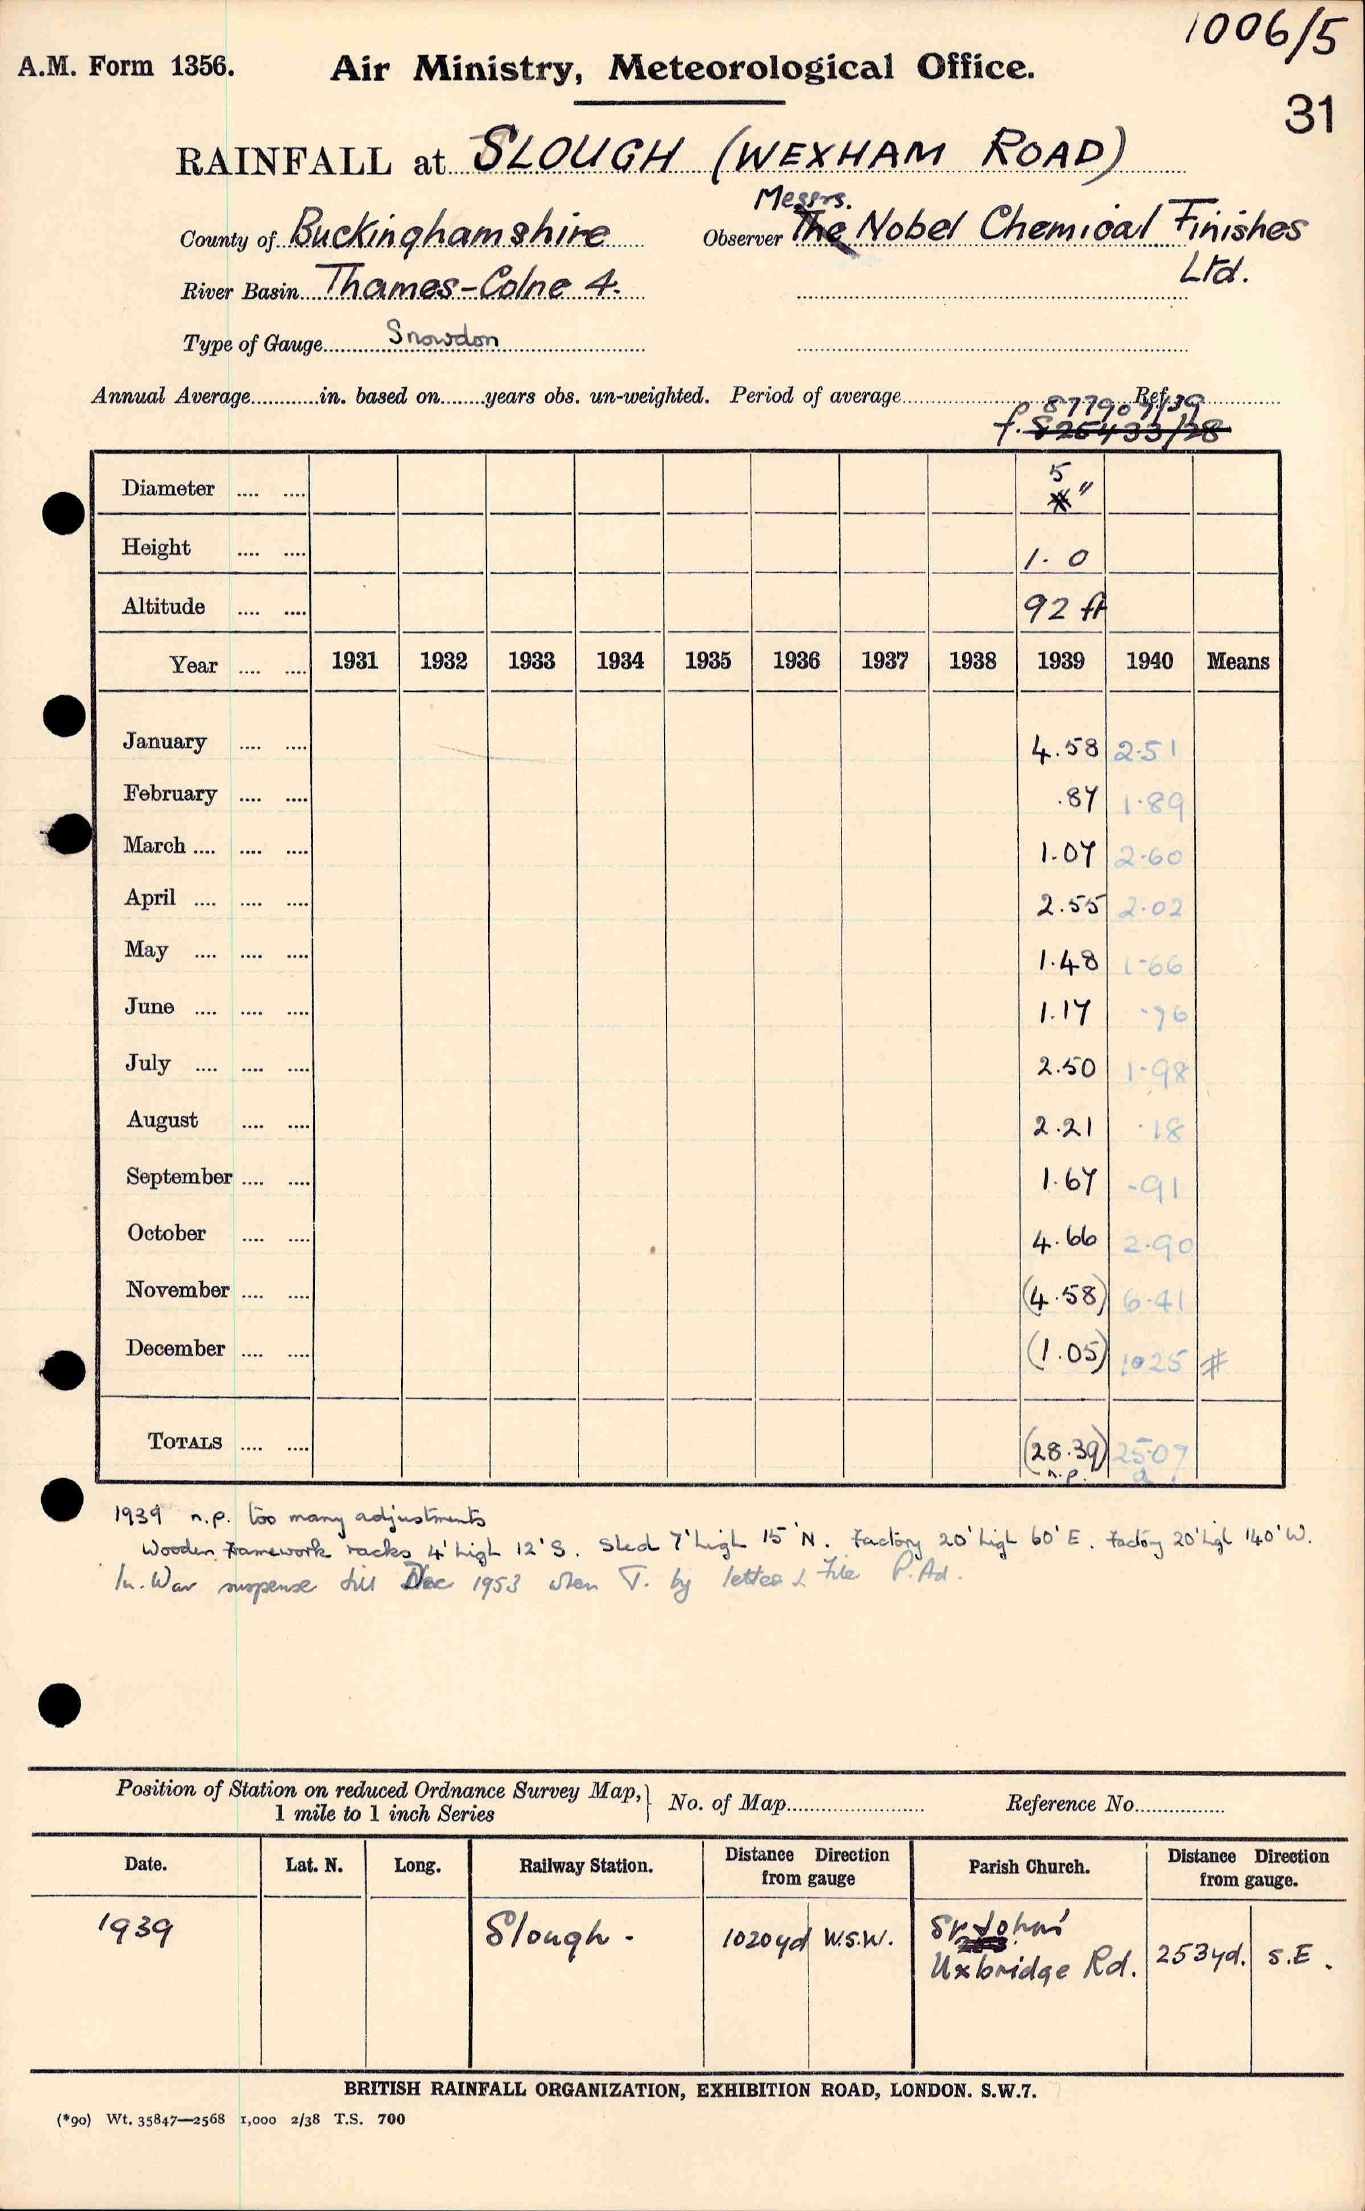 1006/5
A.M. Form 1356. Air Ministry, Meteorological Office.
31
RAINFALL at SLOUGH (WEXHAM ROAD)
Messrs.
County of Buckinghamshire Observer The Nobel Chemical Finishes
River Basin Thames-Colne 4. Ltd.
Type of Gauge Snowdon
Annual Average............in. based on.......years obs. un-weighted. Period of average.................... Ref.
f. 877907/39
f. 825433/28
Diameter .... .... 5 "
Height .... .... 1. 0
Altitude .... .... 92 ft
Year .... .... 1931 1932 1933 1934 1935 1936 1937 1938 1939 1940 Means
January .... .... 4.58 2.51
February .... .... .87 1.89
March .... .... .... 1.07 2.60
April .... .... .... 2.55 2.02
May .... .... .... 1.48 1.66
June .... .... .... 1.17 .76
July .... .... .... 2.50 1.98
August .... .... 2.21 .18
September .... .... 1.67 .91
October .... .... 4.66 2.90
November .... .... (4.58) 6.41
December .... .... (1.05) 1.25 #
TOTALS .... .... (28.39) 25.07
n.p. a
1939 n.p. too many adjustments
Wooden framework racks 4' high 12' S. Shed 7' high 15' N. Factory 20' high 60' E. Factory 20' high 140' W.
In War suspense till Dec 1953 when T. by letter & File P.Ad.
Position of Station on reduced Ordnance Survey Map, } No. of Map........................ Reference No................
1 mile to 1 inch Series
Date. Lat. N. Long. Railway Station. Distance Direction from gauge Parish Church. Distance Direction from gauge.
1939 Slough. 1020yd W.S.W. St Johns' 253yd. S.E.
Uxbridge Rd.
BRITISH RAINFALL ORGANIZATION, EXHIBITION ROAD, LONDON. S.W.7.
(*90) Wt. 35847—2568 1,000 2/38 T.S. 700